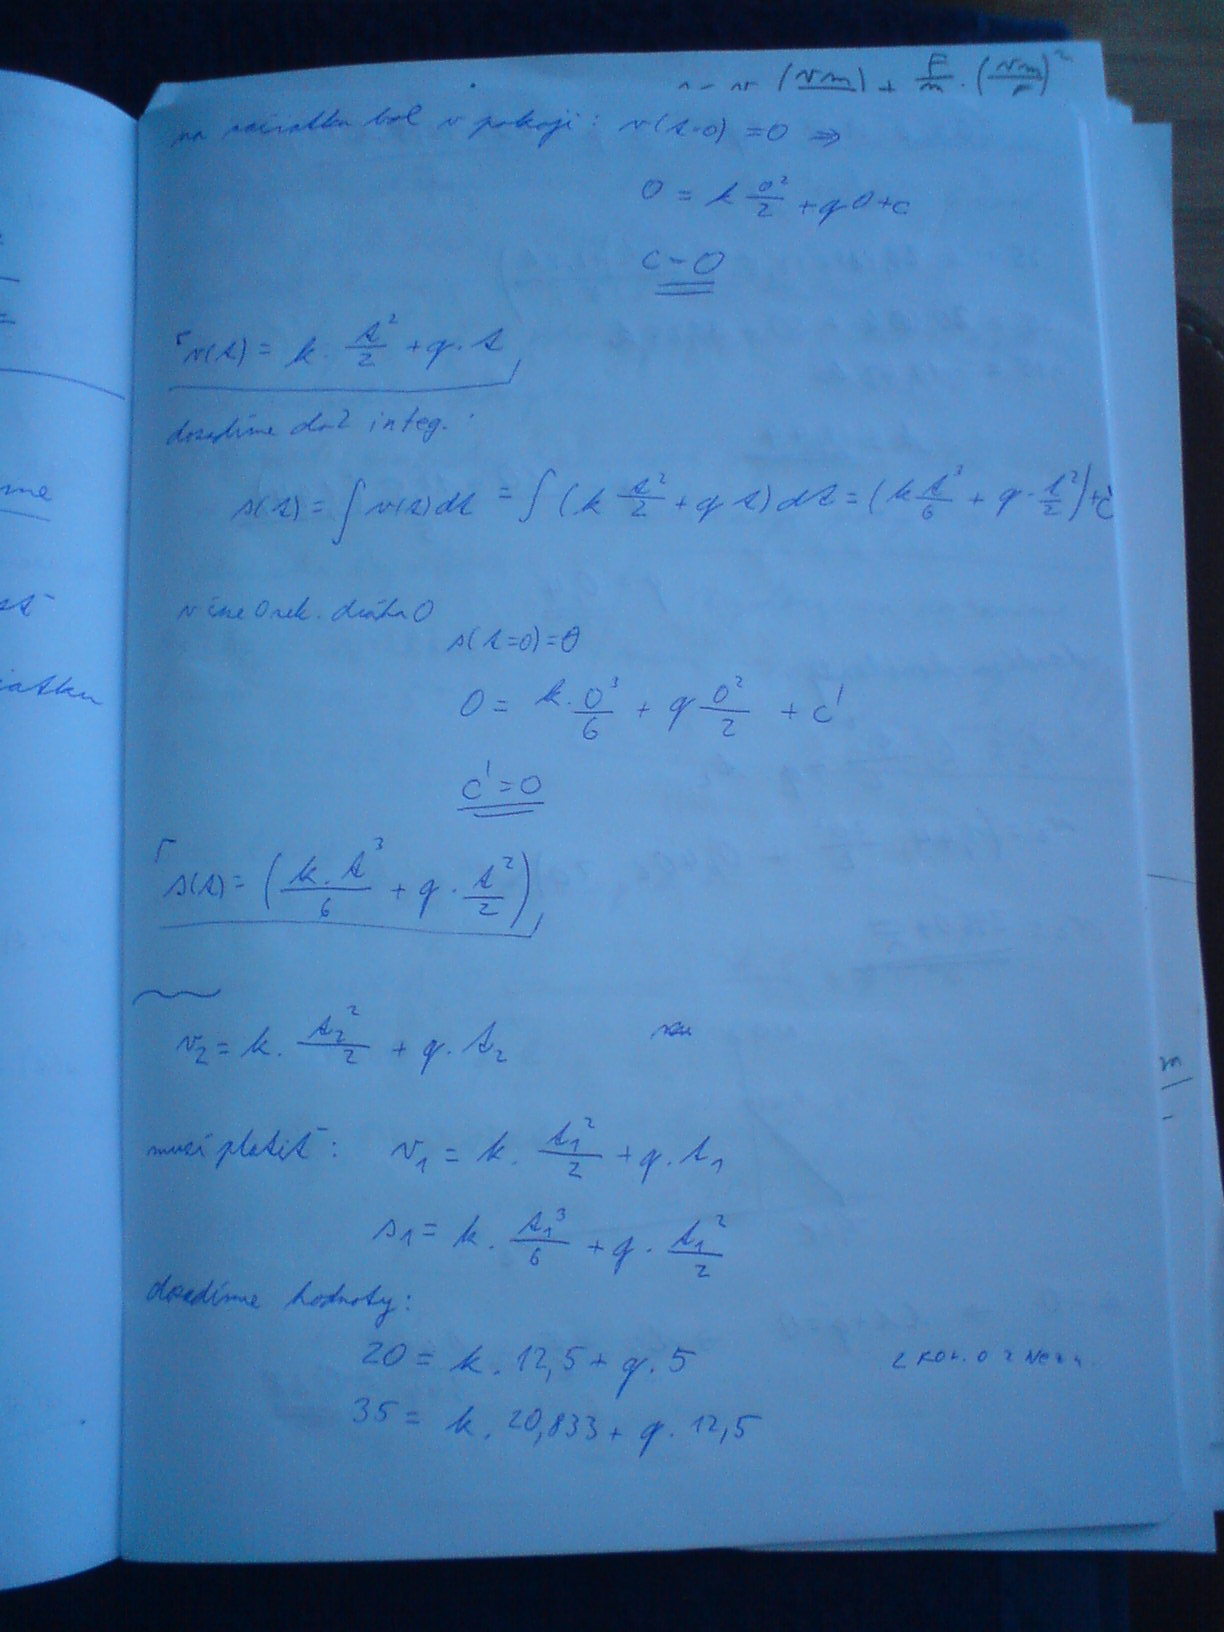 na začiatku bol v pokoji: v(t=0) = 0 ⇒
0 = k 0²/2 + q0 + c
c = 0
v(t) = k . t²/2 + q . t
dosadíme do 2 integ.
s(t) = ∫ v(t) dt = ∫ (k t²/2 + q t) dt = (k t³/6 + q . t²/2) + c'
v čase 0 rek. dráhu 0
s(t=0) = 0
0 = k . 0³/6 + q 0²/2 + c'
c' = 0
s(t) = (k . t³/6 + q . t²/2)
v₂ = k . t₂²/2 + q . t₂
musí platiť: v₁ = k . t₁²/2 + q . t₁
s₁ = k . t₁³/6 + q . t₁²/2
dosadíme hodnoty:
20 = k . 12,5 + q . 5
2 rov. o 2 nezn.
35 = k . 20,833 + q . 12,5